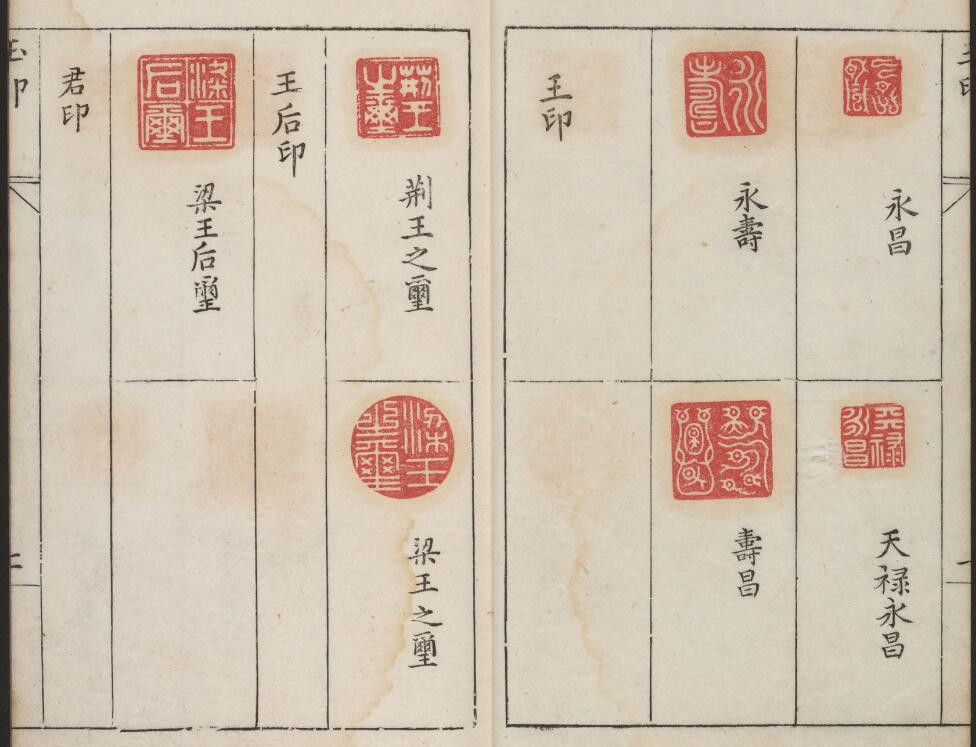 永昌
天祿永昌
永壽
壽昌
王印
荊王之璽
梁王之璽
王后印
梁王后璽
君印
玉印
二